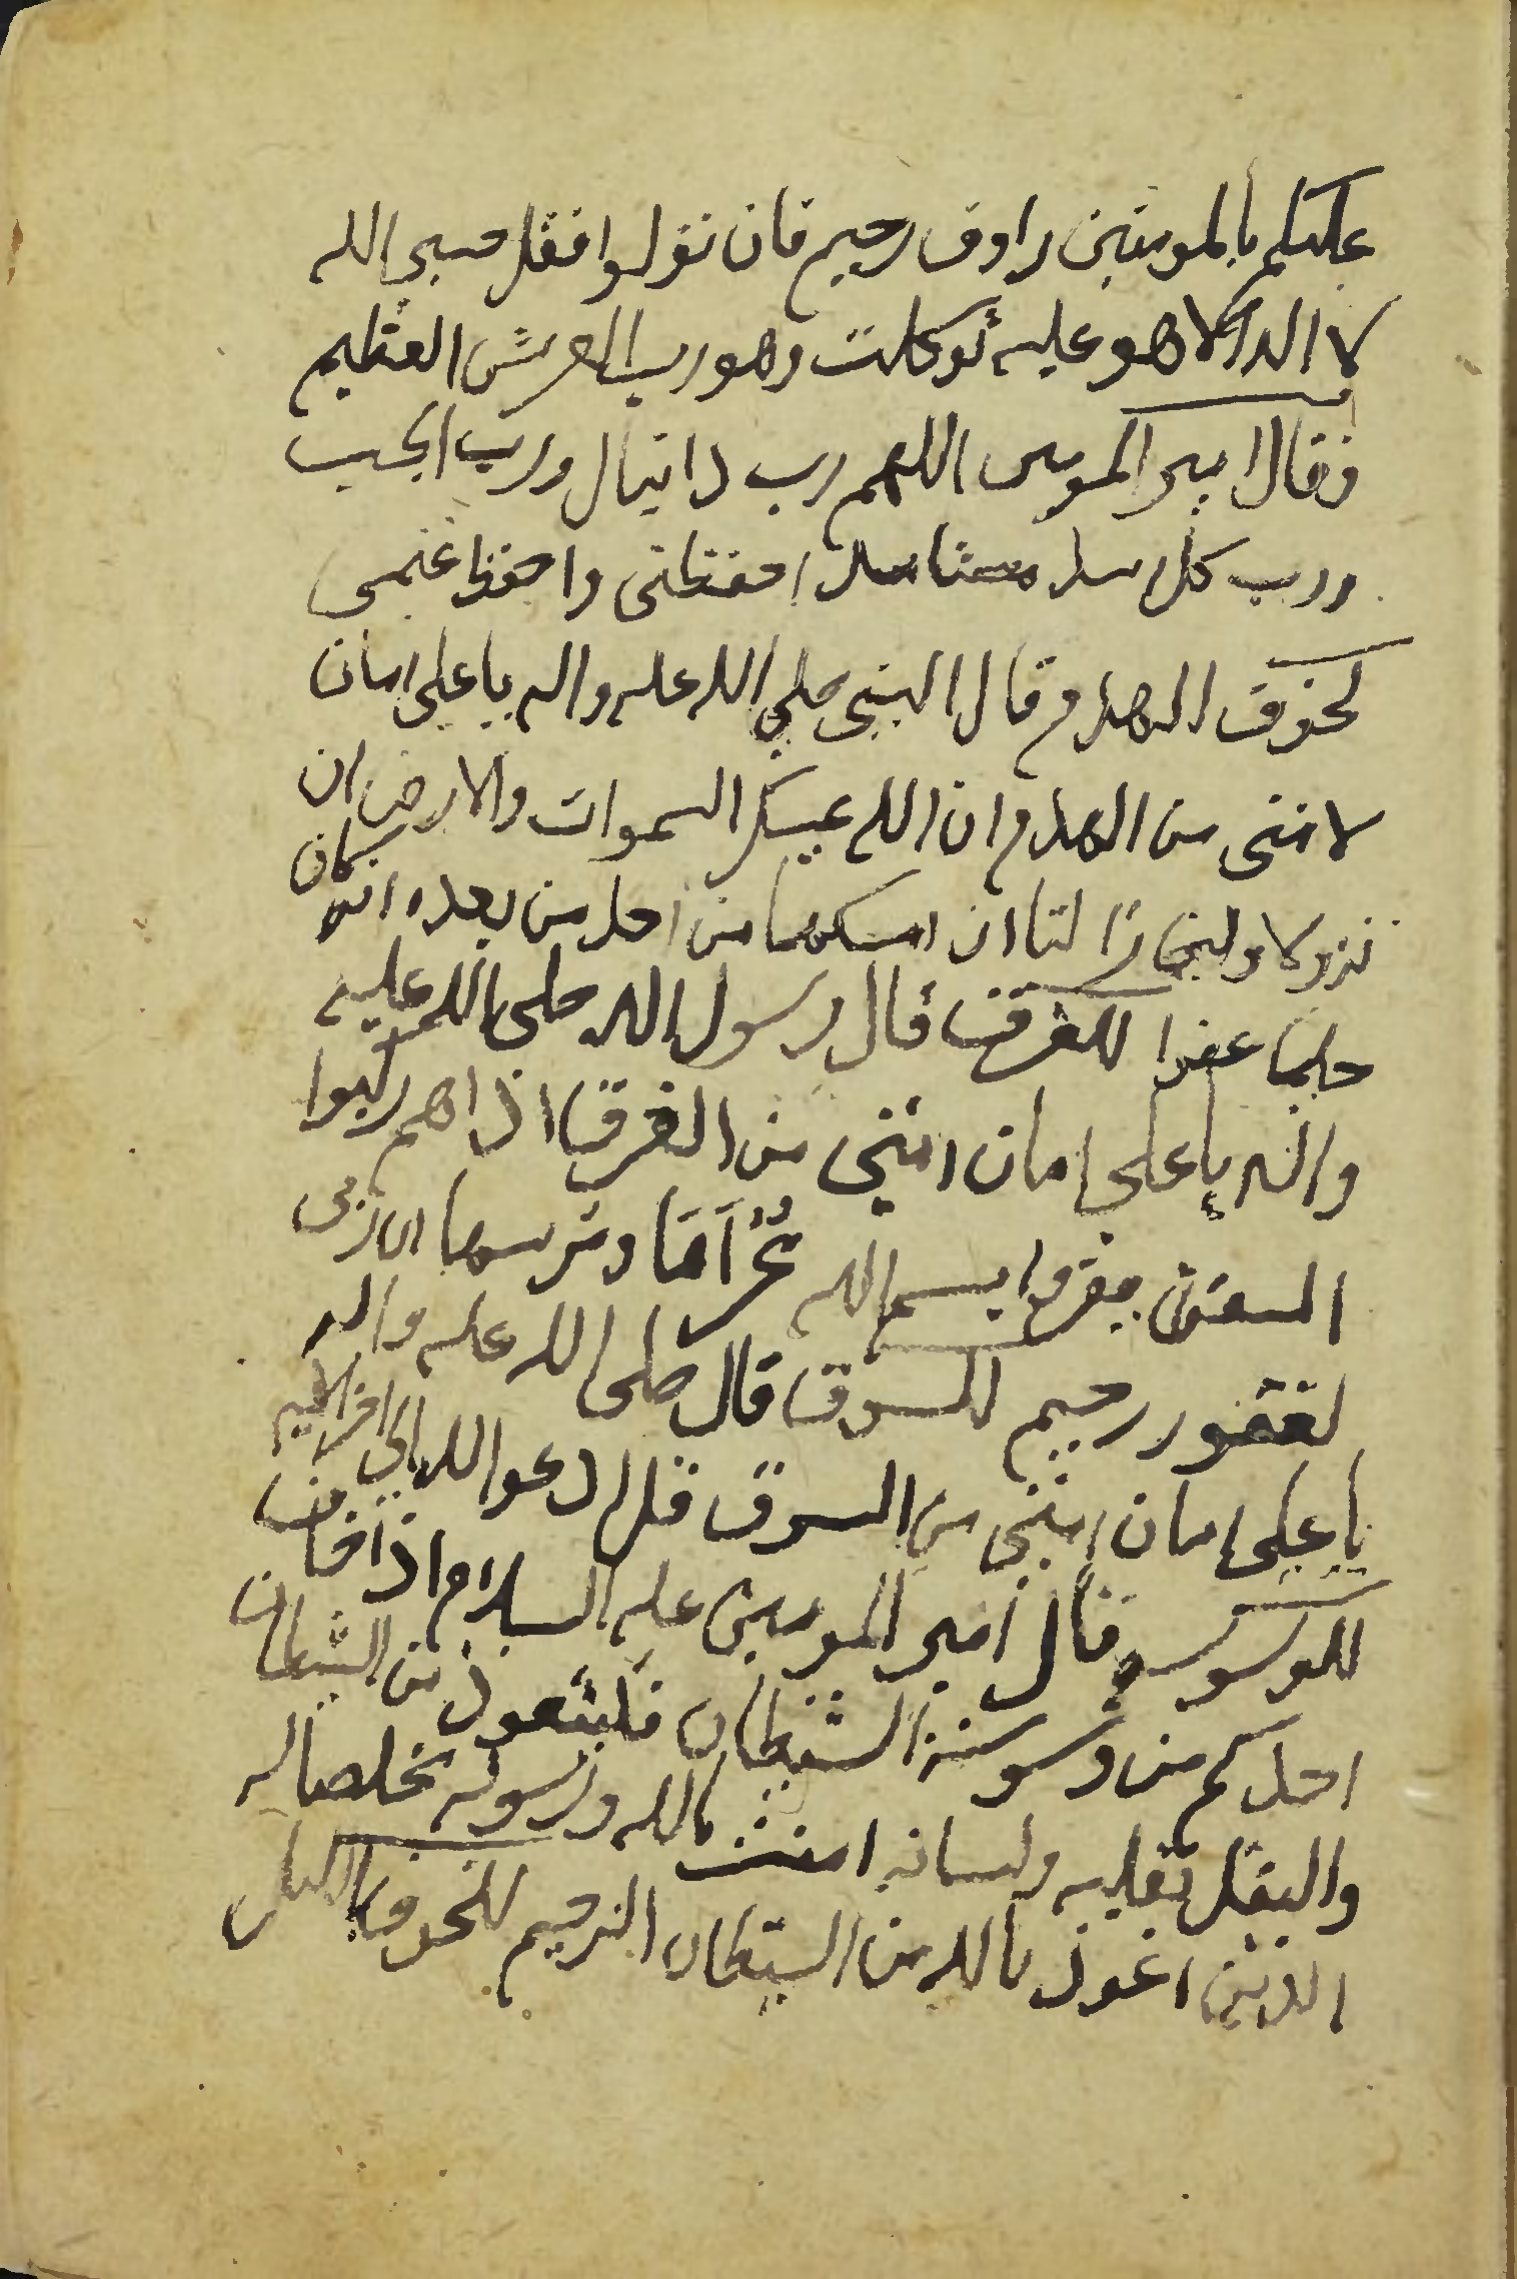 عليكم بالمومنين راوف رحيم فان تولوا فقل حسبي الله
لا اله الا هو عليه توكلت وهو رب العرش العظيم
فقال امير المومنين اللهم رب دانيال ورب الجب
ورب كل اسد مستاسد احفظني واحفظ غنمي
لخوف الهدم قال النبي صلي الله عليه واله يا علي امان
لامتي من الهدم ان الله يمسك السموات والارض ان
تزولا ولين زالتا ان امسكهما من احد من بعده انه كان
حليما غفورا للغرق قال رسول الله صلى الله عليه
واله يا علي امان امتي من الغرق اذا هم ركبوا
السفن يقروا بسم الله مجراها ومرسها ان ربي
لغفور رحيم للسرق قال صلى الله عليه واله
يا علي امان امتي من السرق قل ادعوا الله الى اخر الايه
للوسوسه قال امير المومنين عليه السلام اذا خاف
احدكم من وسوسة الشيطان فليتعوذ من الشيطان
واليقل بقلبه ولسانه امنت بالله ورسوله مخلصا له
الدين اعوذ بالله من الشيطان الرجيم للخوف بالليل